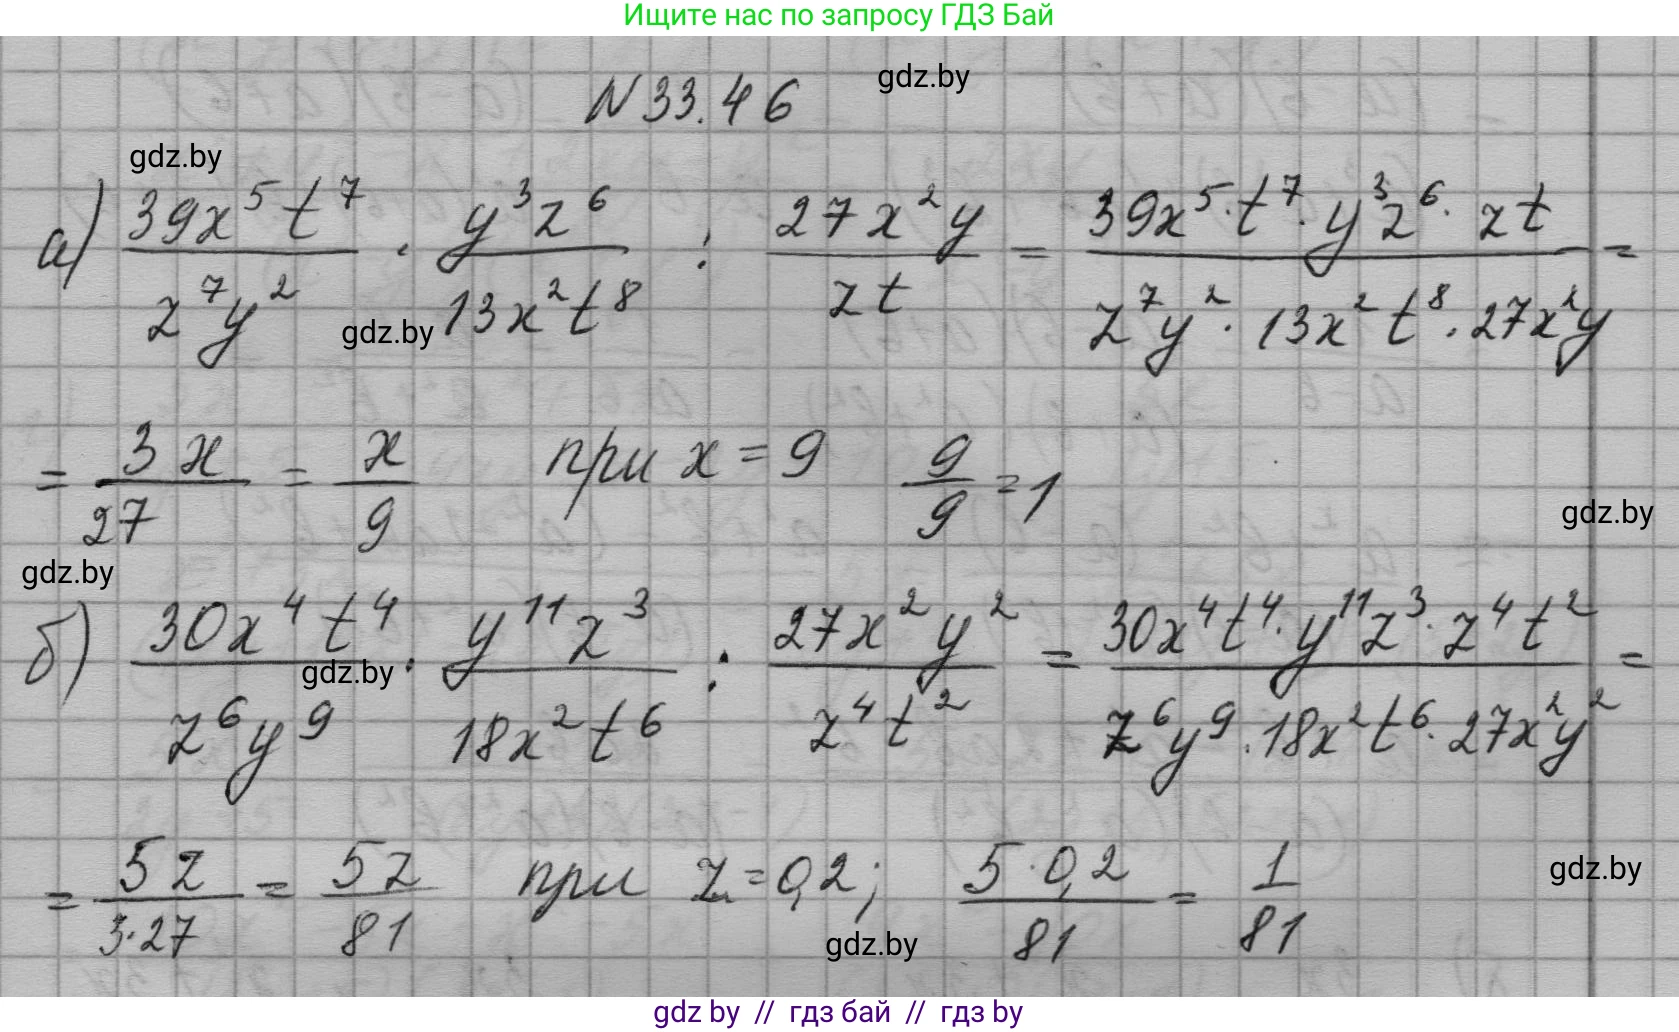 Ищите нас по запросу ГДЗ Бай
N 33.46
gdz.by
gdz.by
а) 39x⁵t⁷/z⁷y² · y³z⁶/13x²t⁸ : 27x²y/zt = 39x⁵·t⁷·y³z⁶·zt/z⁷y²·13x²t⁸·27x²y =
gdz.by
= 3x/27 = x/9 при x = 9 9/9 = 1
gdz.by
gdz.by
б) 30x⁴t⁴/z⁶y⁹ · y¹¹z³/18x²t⁶ : 27x²y²/z⁴t² = 30x⁴t⁴·y¹¹z³·z⁴t²/z⁶y⁹·18x²t⁶·27x²y² =
gdz.by
= 5z/3·27 = 5z/81 при z = 0,2; 5·0,2/81 = 1/81
gdz.by
gdz.by
gdz by // гдз бай // gdz by